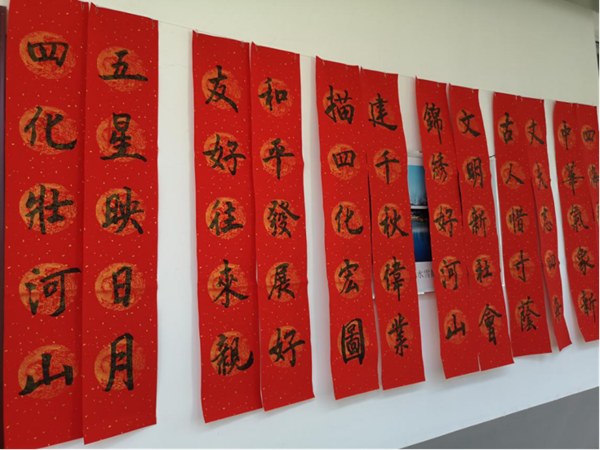 中華氣象新
丈夫志四
古人惜寸蔭
文明新社會
錦繡好河山
建千秋偉業
描四化宏圖
和平發展好
友好往來親
五星映日月
四化壯河山